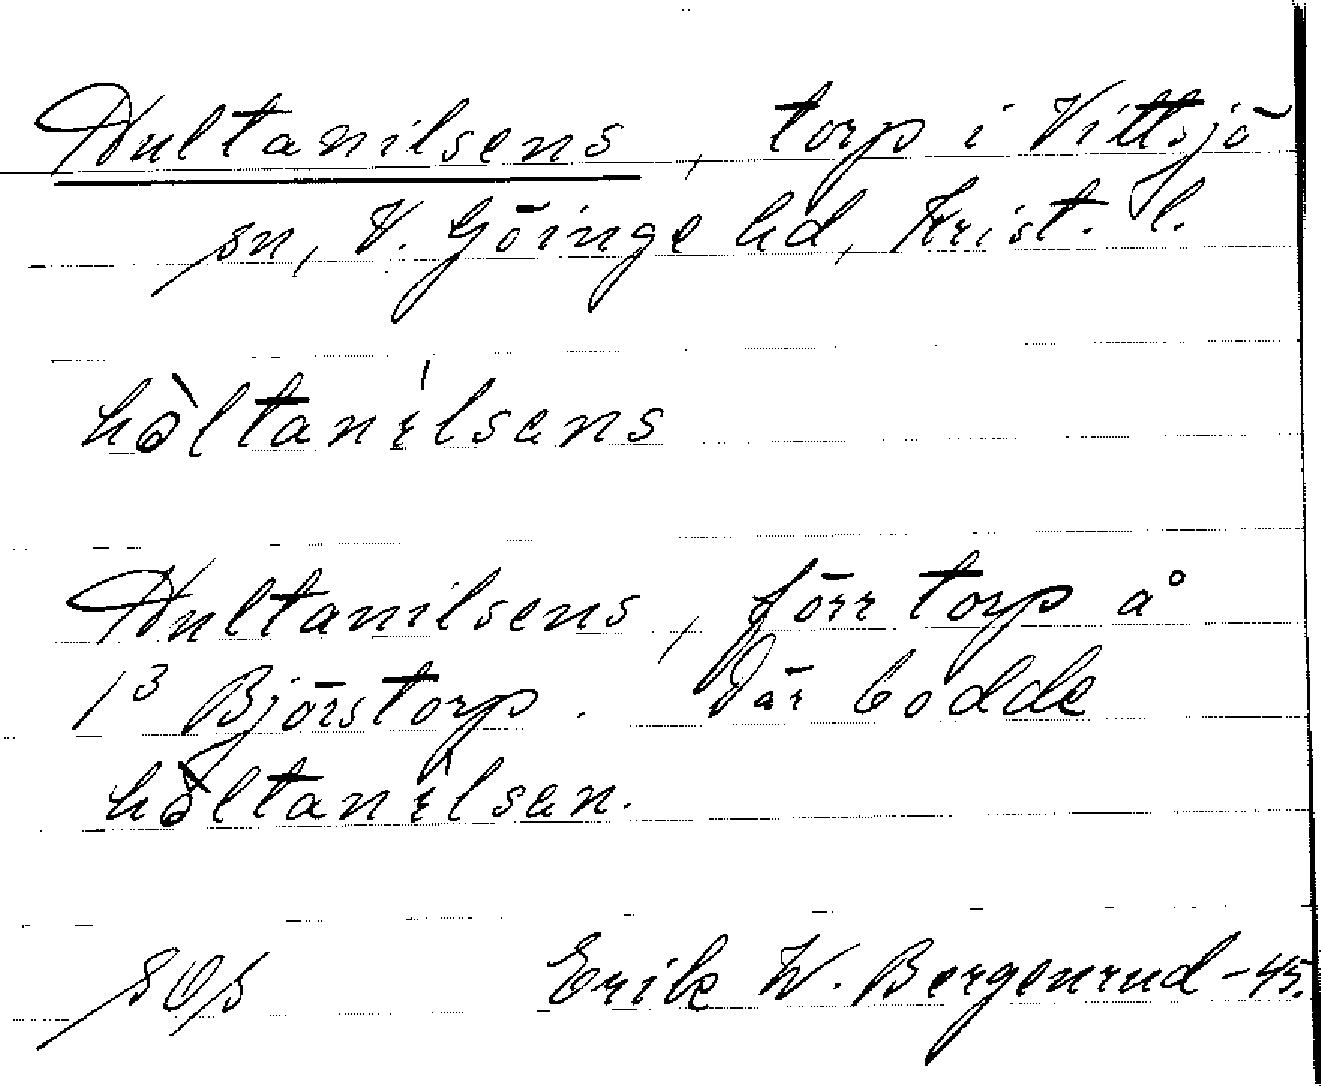 Hultanilsens, torp i Vittsjö
sn, V. Göinge hd, Krist. l.
hòltanílsens
Hultanilsens, förr torp å
1³ Björstorp. Där bodde
hòltanílsen.
Erik W. Bergenrud -45.